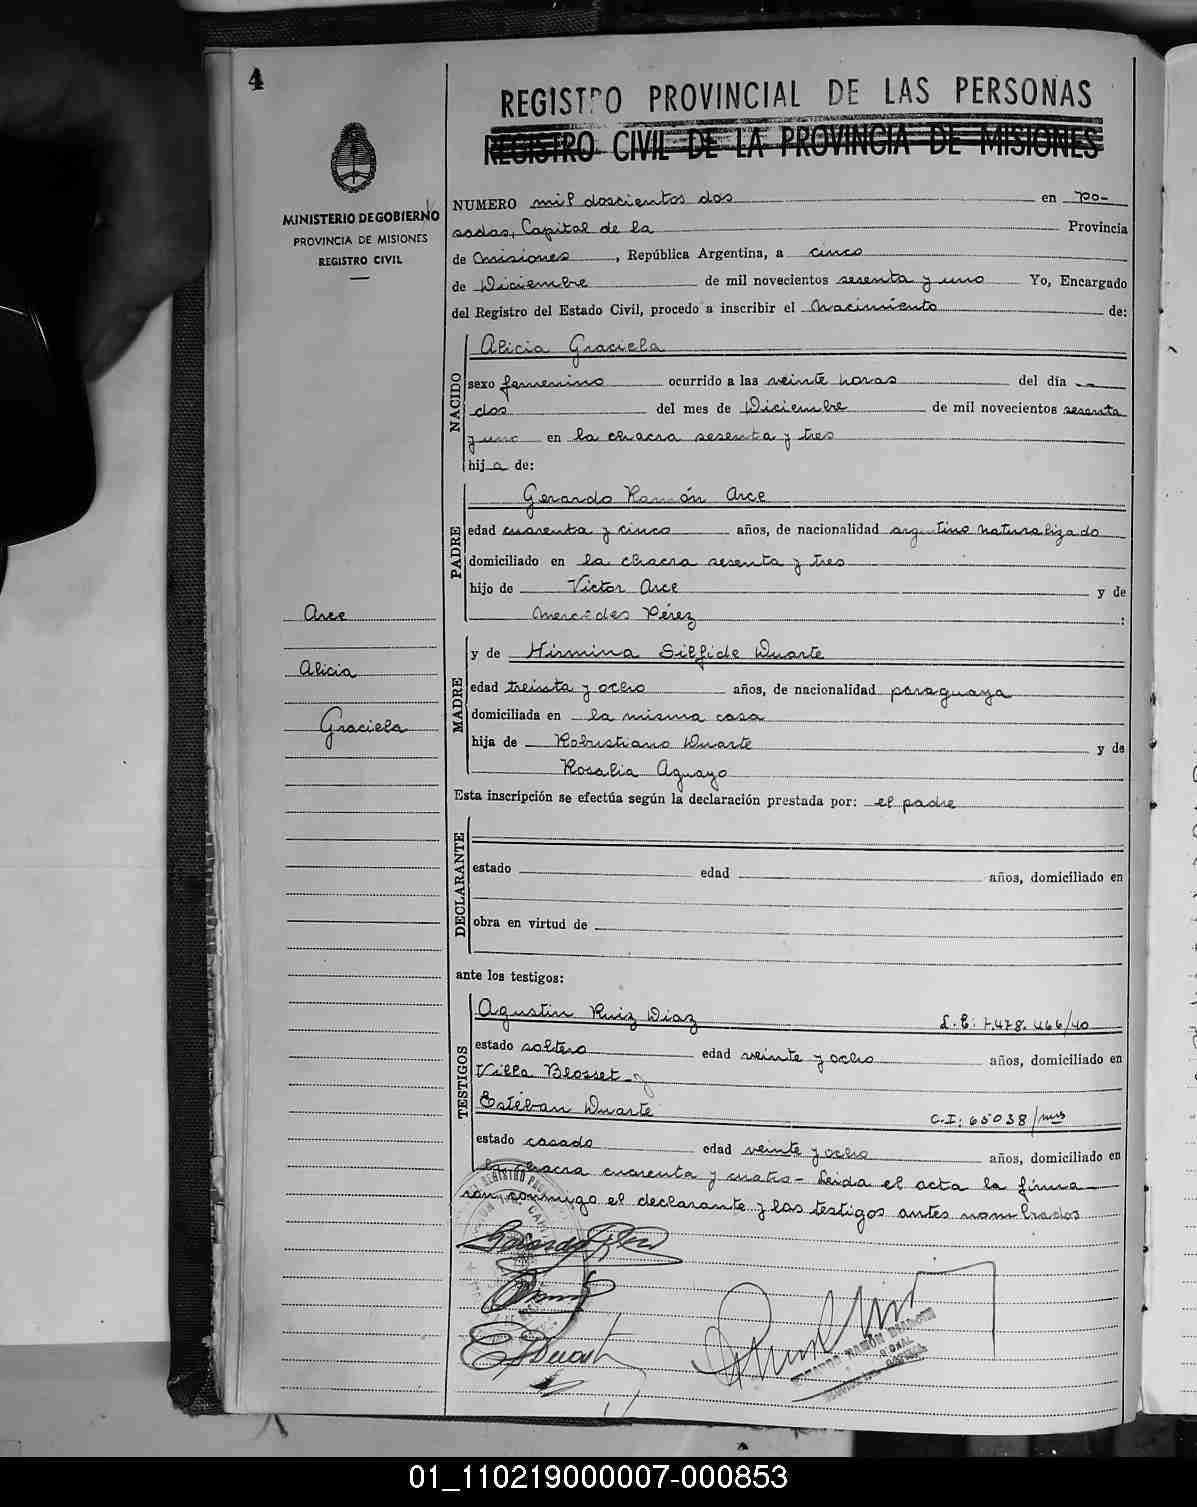 4
REGISTRO PROVINCIAL DE LAS PERSONAS
REGISTRO CIVIL DE LA PROVINCIA DE MISIONES
MINISTERIO DE GOBIERNO
PROVINCIA DE MISIONES
REGISTRO CIVIL
NUMERO mil doscientos dos en Po-
sadas, Capital de la Provincia
de Misiones, República Argentina, a cinco
de Diciembre de mil novecientos sesenta y uno Yo, Encargado
del Registro del Estado Civil, procedo a inscribir el Nacimiento de:
NACIDO
Alicia Graciela
sexo femenino ocurrido a las veinte horas del día
dos del mes de Diciembre de mil novecientos sesenta
y uno en la chacra sesenta y tres
hija de:
PADRE
Gerardo Ramón Arce
edad cuarenta y cinco años, de nacionalidad argentino naturalizado
domiciliado en la chacra sesenta y tres
hijo de Victor Arce y de
Mercedes Pérez :
Arce
Alicia
Graciela
MADRE
y de Hirmina Silfide Duarte
edad treinta y ocho años, de nacionalidad paraguaya
domiciliada en la misma casa
hija de Robustiano Duarte y de
Rosalia Aguayo
Esta inscripción se efectúa según la declaración prestada por: el padre
DECLARANTE
estado edad años, domiciliado en
obra en virtud de
ante los testigos:
TESTIGOS
Agustin Ruiz Diaz L.E: 7.478.466/40
estado soltero edad veinte y ocho años, domiciliado en
Villa Blosset y
Estéban Duarte C.I: 65038/mns
estado casado edad veinte y ocho años, domiciliado en
la chacra cuarenta y cuatro - Leida el acta la firma-
ron, conmigo el declarante y los testigos antes nombrados
01_110219000007-000853